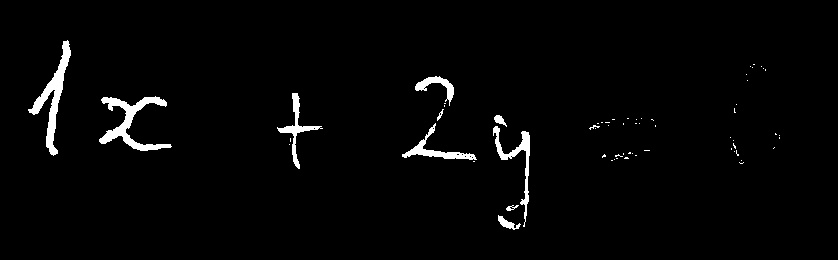 1x + 2y = 6